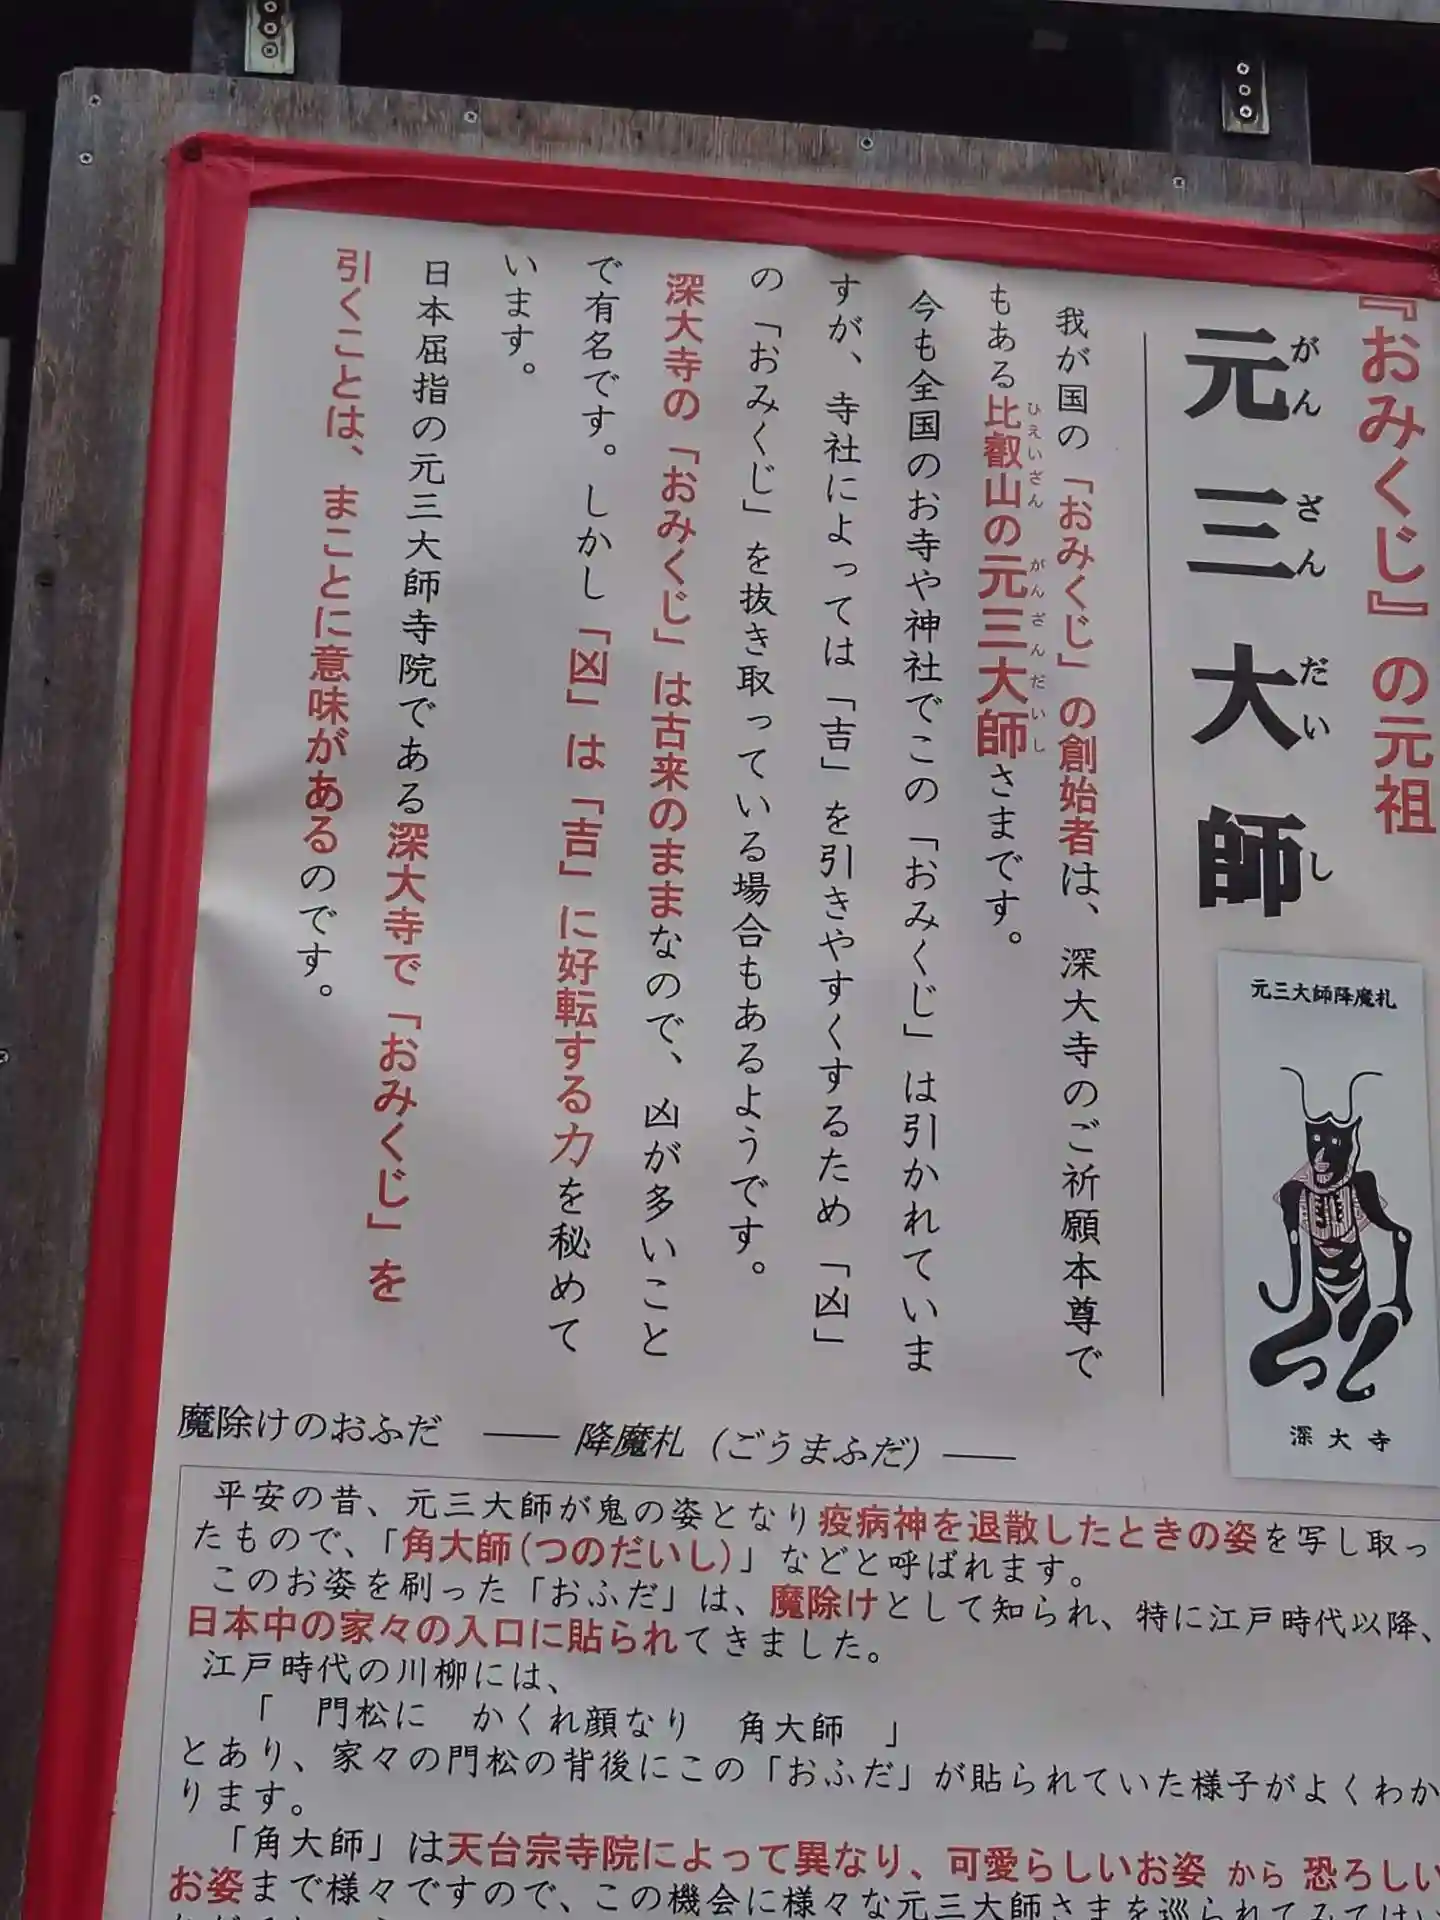 『おみくじ』の元祖
元三大師
がんざんだいし
我が国の「おみくじ」の創始者は、深大寺のご祈願本尊で
もある比叡山の元三大師さまです。
ひえいざん がんざんだいし
今も全国のお寺や神社でこの「おみくじ」は引かれていま
すが、寺社によっては「吉」を引きやすくするため「凶」
の「おみくじ」を抜き取っている場合もあるようです。
深大寺の「おみくじ」は古来のままなので、凶が多いこと
で有名です。しかし「凶」は「吉」に好転する力を秘めて
います。
日本屈指の元三大師寺院である深大寺で「おみくじ」を
引くことは、まことに意味があるのです。
元三大師降魔札
深大寺
魔除けのおふだ ―― 降魔札（ごうまふだ）――
平安の昔、元三大師が鬼の姿となり疫病神を退散したときの姿を写し取っ
たもので、「角大師(つのだいし)」などと呼ばれます。
このお姿を刷った「おふだ」は、魔除けとして知られ、特に江戸時代以降、
日本中の家々の入口に貼られてきました。
江戸時代の川柳には、
「　門松に　かくれ顔なり　角大師　」
とあり、家々の門松の背後にこの「おふだ」が貼られていた様子がよくわか
ります。
「角大師」は天台宗寺院によって異なり、可愛らしいお姿 から 恐ろしい
お姿まで様々ですので、この機会に様々な元三大師さまを巡られてみては